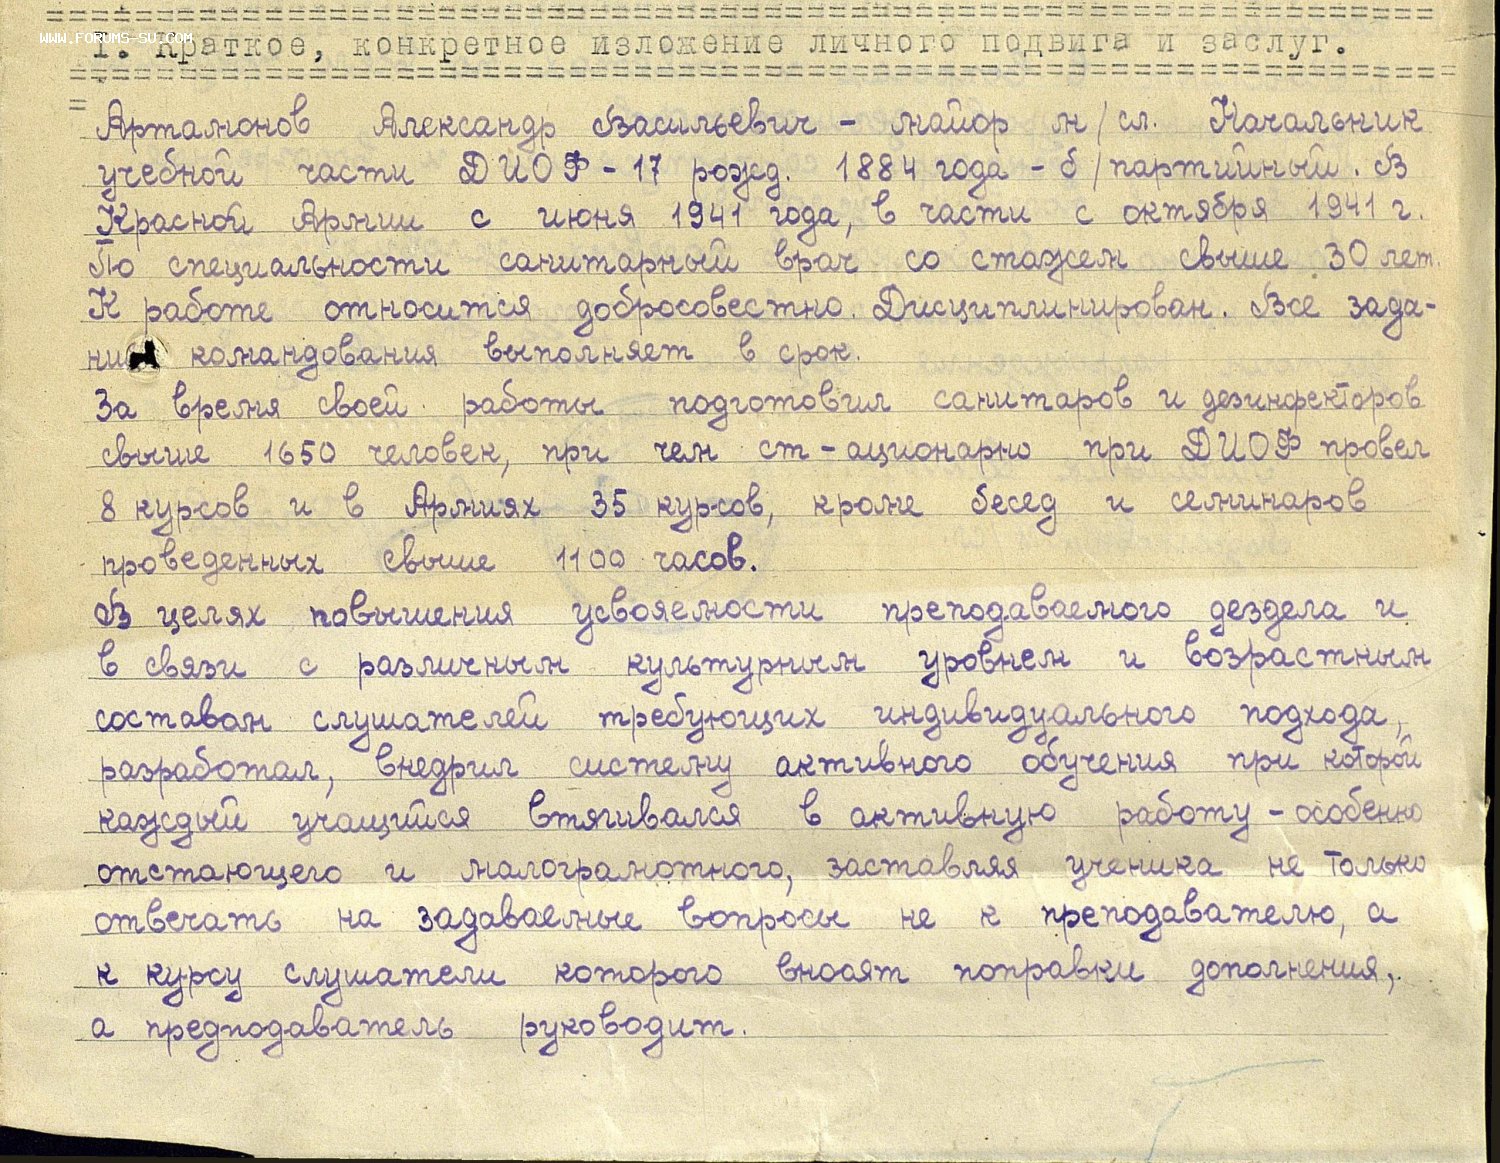 WWW.FORUMS-SU.COM
I. Краткое, конкретное изложение личного подвига и заслуг.
Артамонов Александр Васильевич - майор м/сл. Начальник
учебной части ДИОФ-17 рожд. 1884 года - б/партийный. В
Красной Армии с июня 1941 года, в части с октября 1941 г.
По специальности санитарный врач со стажем свыше 30 лет.
К работе относится добросовестно. Дисциплинирован. Все зада-
ни командования выполняет в срок.
За время своей работы подготовил санитаров и дезинфекторов
свыше 1650 человек, при чем ст-ационарно при ДИОФ провел
8 курсов и в Армиях 35 курсов, кроме бесед и семинаров
проведенных свыше 1100 часов.
В целях повышения усвояемости преподаваемого дездела и
в связи с различным культурным уровнем и возрастным
составом слушателей требующих индивидуального подхода,
разработал, внедрил систему активного обучения при которой
каждый учащийся втягивался в активную работу - особенно
отстающего и малограмотного, заставляя ученика не только
отвечать на задаваемые вопросы не к преподавателю, а
к курсу слушатели которого вносят поправки дополнения,
а предподаватель руководит.